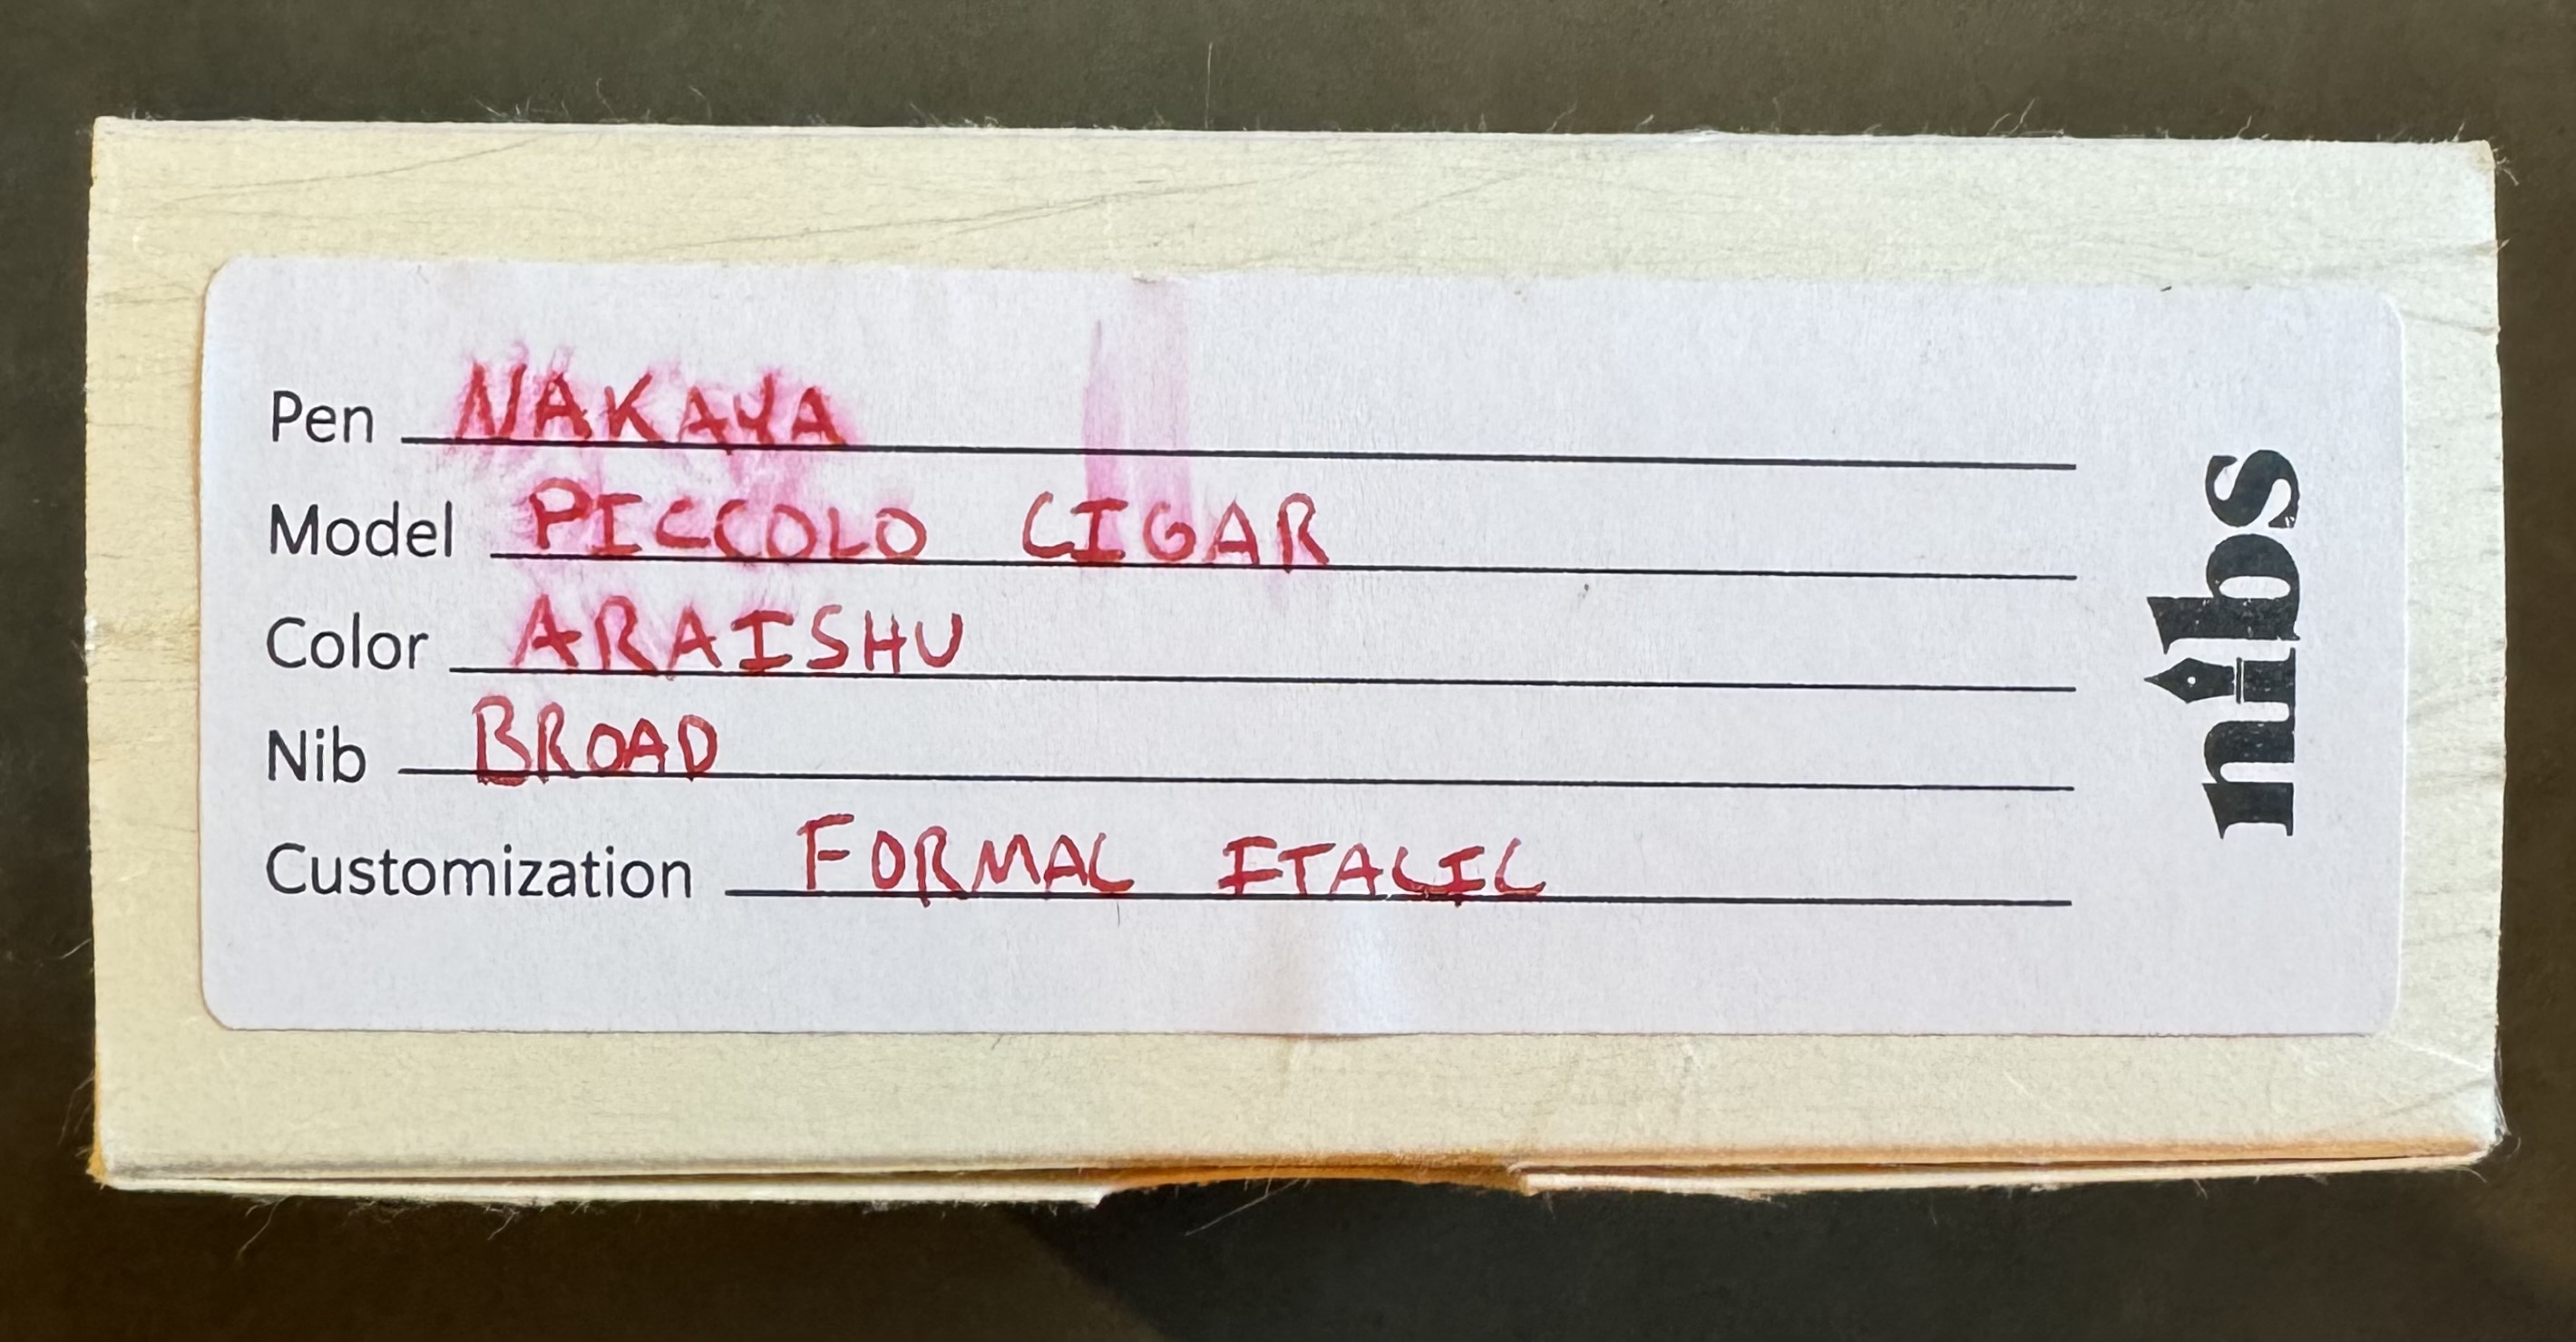 Pen NAKAYA
Model PICCOLO CIGAR
Color ARAISHU
Nib BROAD
Customization FORMAL ITALIC
nibs